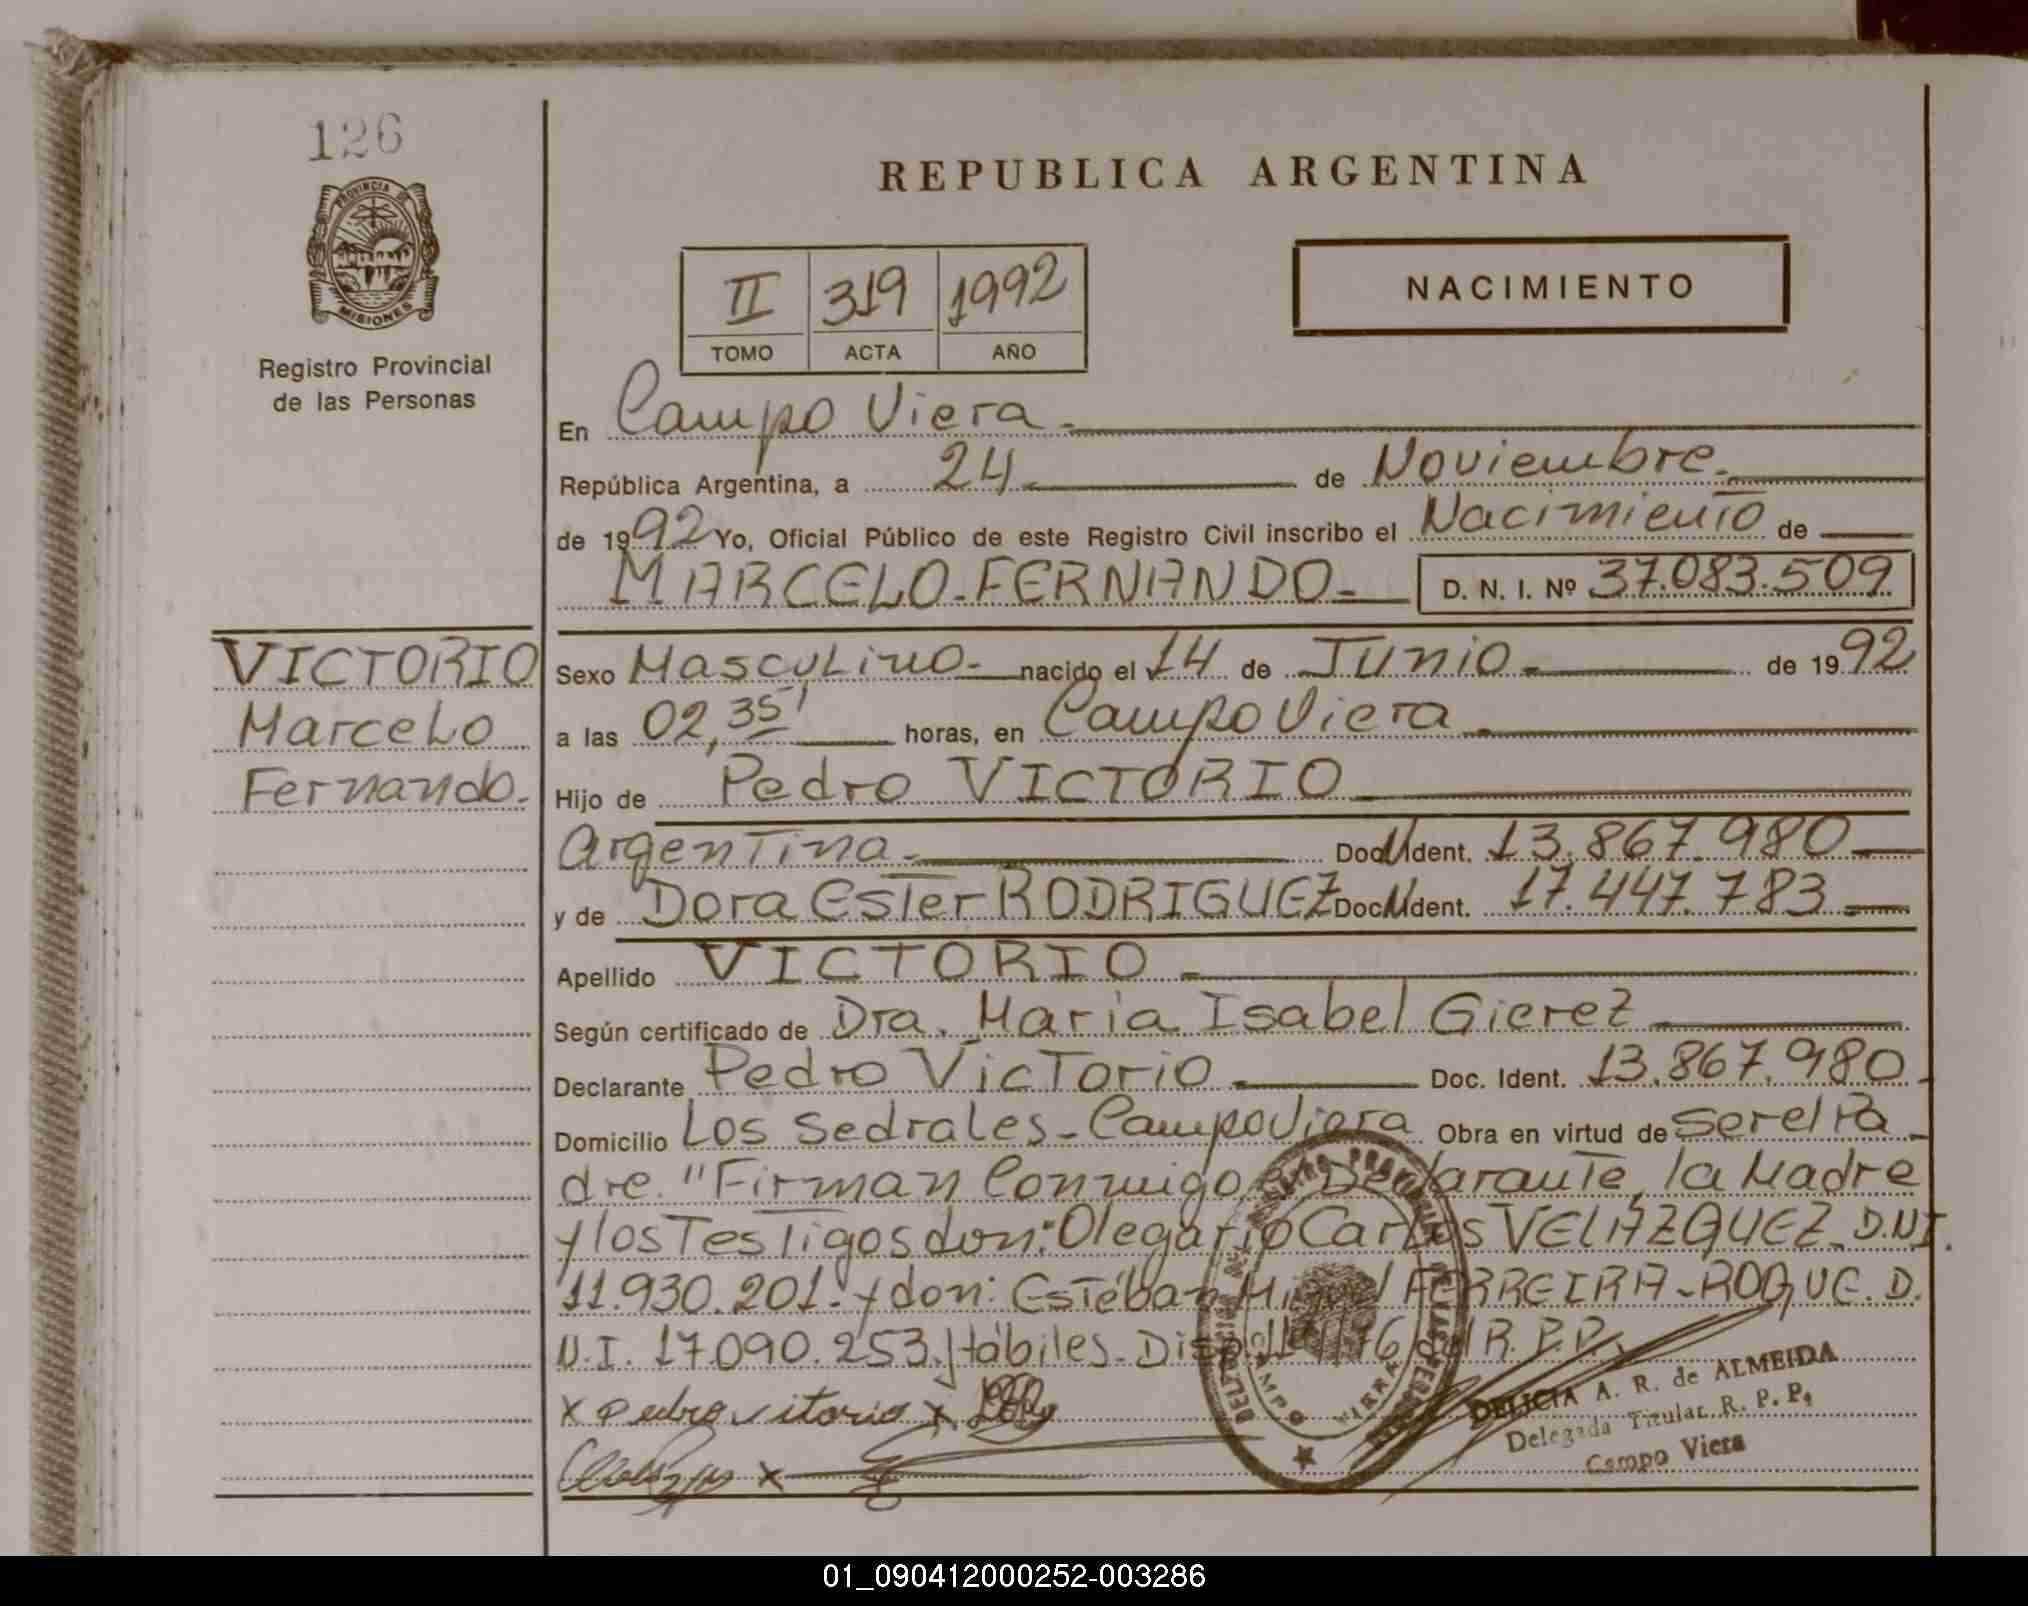 126
PROVINCIA DE
MISIONES
Registro Provincial
de las Personas
REPUBLICA ARGENTINA
II 319 1992
TOMO ACTA AÑO
NACIMIENTO
En Campo Viera.
República Argentina, a 24 de Noviembre.
de 1992 Yo, Oficial Público de este Registro Civil inscribo el Nacimiento de
MARCELO-FERNANDO- D. N. I. Nº 37.083.509
VICTORIO
Marcelo
Fernando.
Sexo Masculino- nacido el 14 de Junio. de 1992
a las 02,35' horas, en Campo Viera
Hijo de Pedro VICTORIO
Argentina. Doc. Ident. 13.867.980
y de Dora Ester RODRIGUEZ Doc. Ident. 17.447.783
Apellido VICTORIO
Según certificado de Dra. Maria Isabel Gierez
Declarante Pedro Victorio Doc. Ident. 13.867.980
Domicilio Los Sedrales-Campo Viera Obra en virtud de Ser el Pa
dre. "Firman Conmigo, el Declarante, la Madre
y los Testigos don: Olegario Carlos VELAZQUEZ-D.NI.
11.930.201.y don: Estéban Miguel FERREIRA-ROQUE. D.
N.I. 17.090.253. Hábiles- del R.P.P.
x pedro vitorio x
x
CAMPO VIERA
DELICIA A. R. de ALMEIDA
Delegada Titular R. P. P.
Campo Viera
01_090412000252-003286